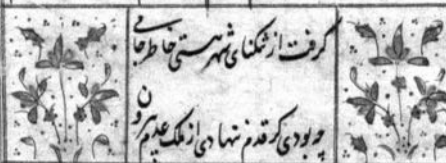 گرفت از تنگنای شهر هستی خاطر جامی
چه بودی گر قدم ننهادی از ملک عدم بیرون